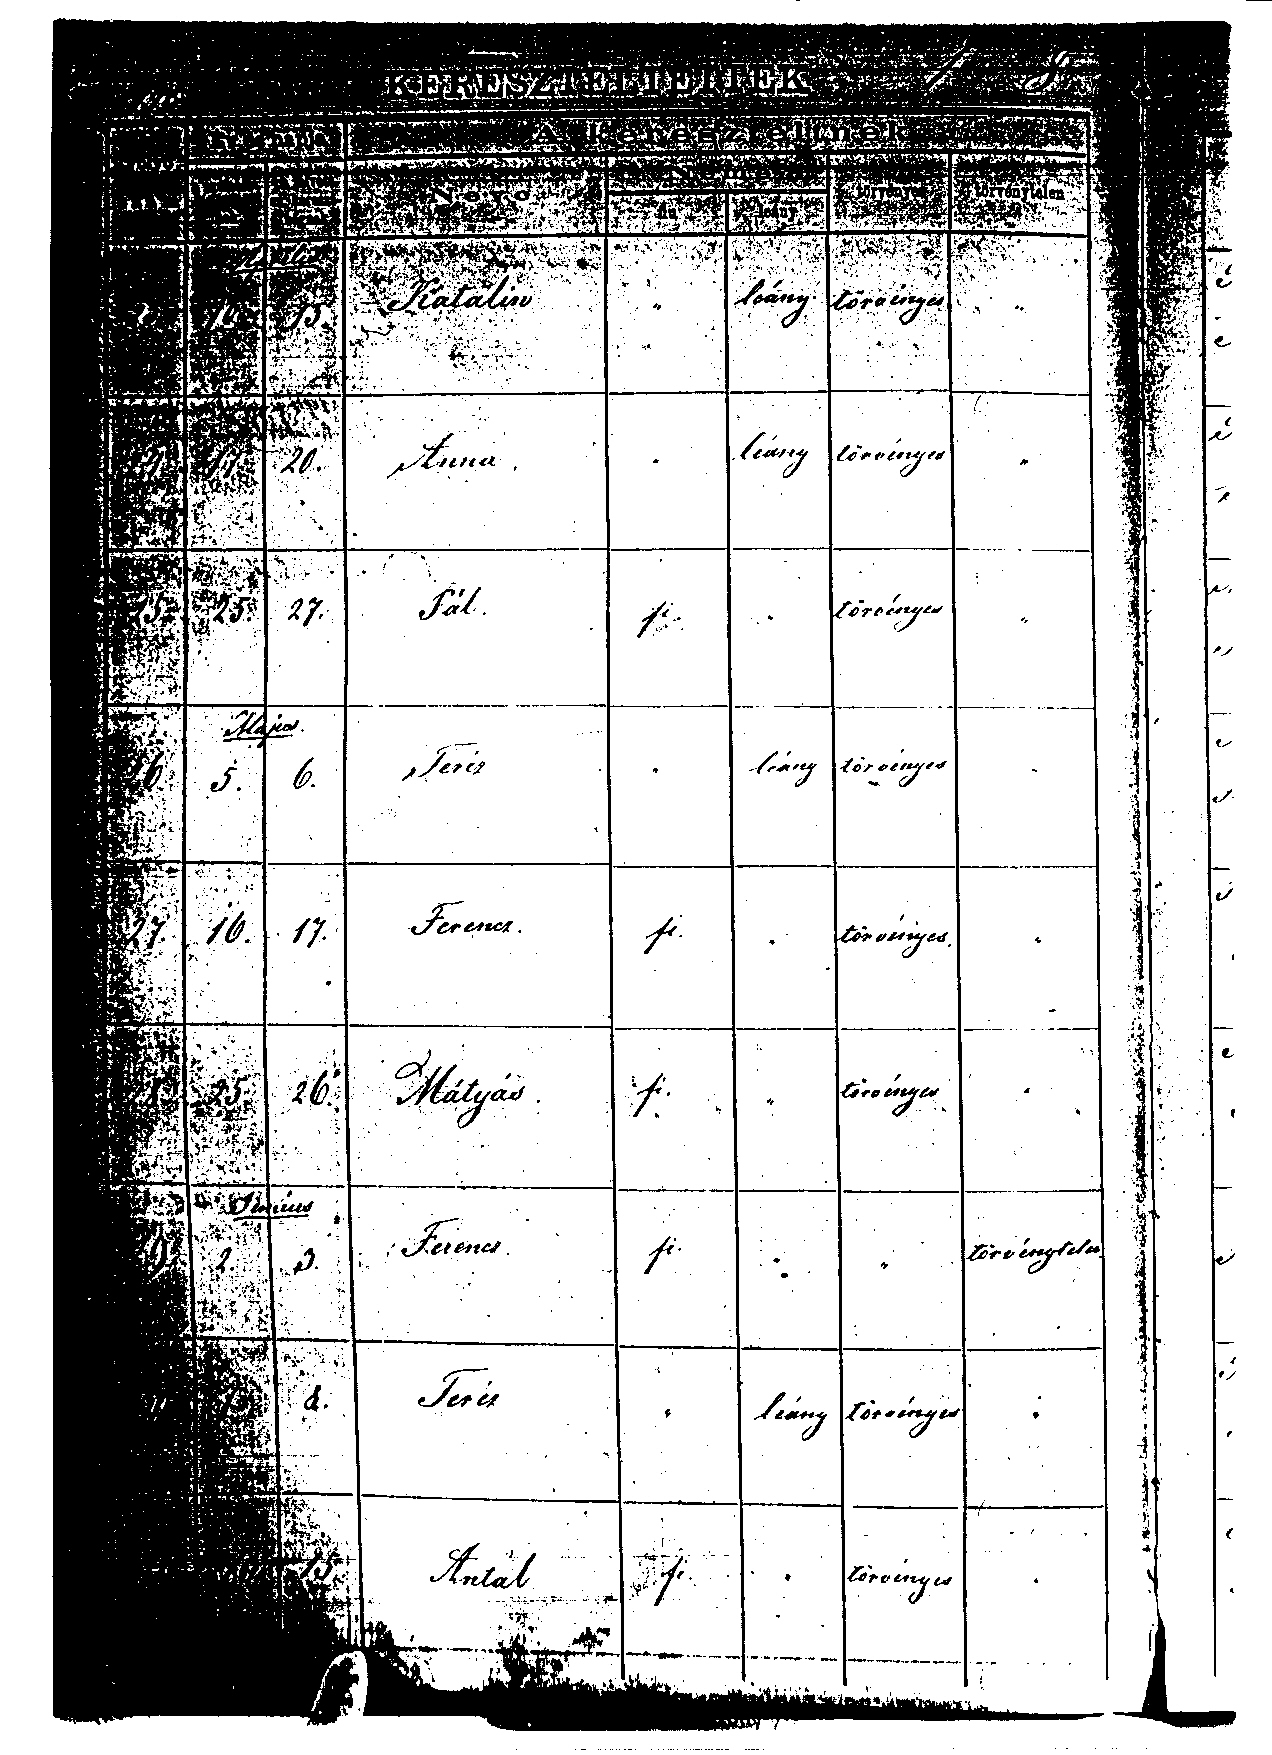 KERESZTELTETTEK
A kereszteltnek
Neve
Neme
fiu
leány
törvényes
törvénytelen
15.
Katalin
"
leány
törvényes
"
20.
Anna.
"
leány
törvényes
"
25.
25.
27.
Pál.
fi.
"
törvényes
"
Május.
26.
5.
6.
Teréz
"
leány
törvényes
"
27.
16.
17.
Ferencz.
fi.
"
törvényes.
"
25.
26.
Mátyás.
fi.
"
törvényes
"
Június
2.
3.
Ferencz.
fi.
"
"
törvénytelen
8.
Teréz
"
leány
törvényes
"
15.
Antal
fi.
"
törvényes
"